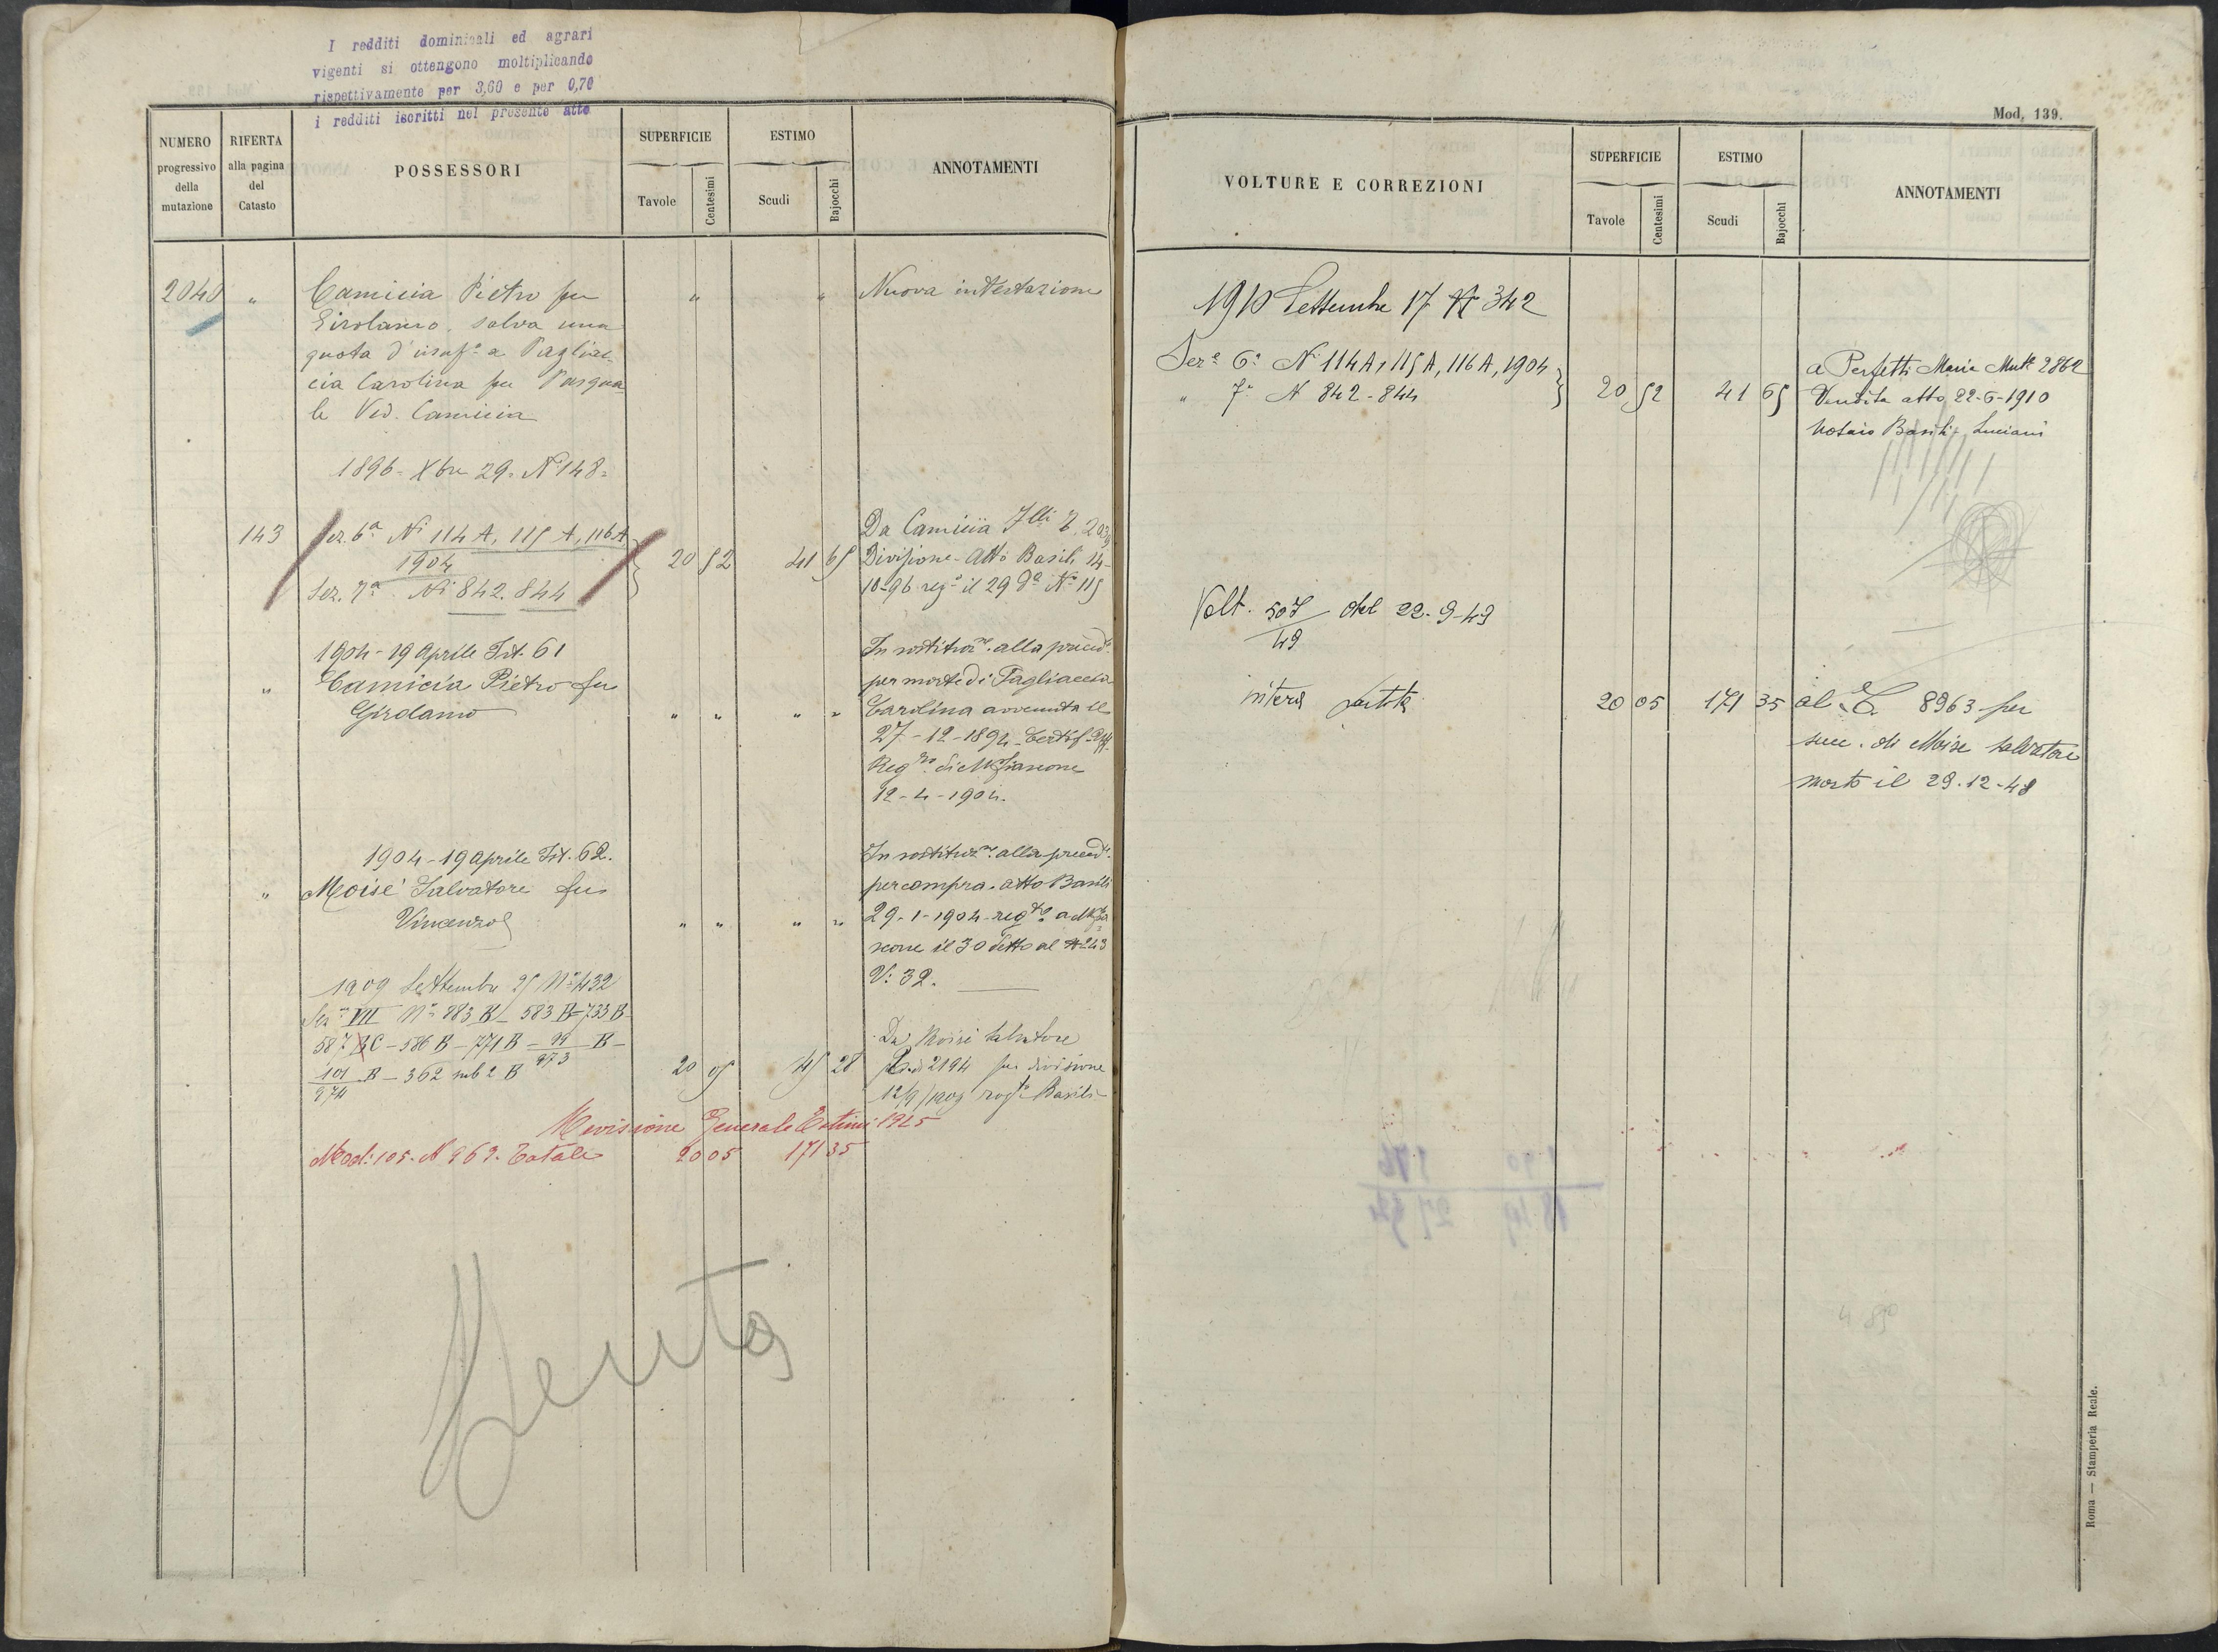 I redditi dominicali ed agrari
vigenti si ottengono moltiplicando
rispettivamente per 3,60 e per 0,70
i redditi iscritti nel presente atto
NUMERO
progressivo
della
mutazione
RIFERTA
alla pagina
del
Catasto
POSSESSORI
SUPERFICIE
Tavole
Centesimi
ESTIMO
Scudi
Bajocchi
ANNOTAMENTI
2040 " Camicia Pietro fu " " Nuova intestazione
Girolamo, salva una
quota d'usufo a Pagliac-
cia Carolina fu Pasqua-
le Ved. Camicia
1896 = Xbre 29. No 148 =
143 Sez. 6a Ni 114 A, 115 A, 116 A
1904
Sez. 7a Ni 842. 844
20 52 41 65
Da Camicia Flli
Divisione - Atto Basili 14-
10-96 rego il 29 do No 115
1904 - 19 Aprile Ist. 61
" Camicia Pietro fu
Girolamo " " " "
In sostituzne alla preced.
per morte di Pagliaccia
Carolina avvenuta il
27-12-1894
12-4-1904.
1904 - 19 Aprile Ist. 62.
" Moisè Salvatore fu
Vincenzo " " " "
In sostituzne alla preced.
per compra. atto Basili
29-1-1904 - regto a
scone il 30 detto al N 243
V: 32.
1909 Settembre 25 No 432
Sez. VII No 883 B - 583 B - 733 B -
587 BC - 586 B - 771 B - 99/973 B -
101/974 B - 362 sub 2 B
20 05 45 28
Da Moisè Salvatore
2194 per divisione
12/9/1909 rogo Basili
Revisione Generale Estimi 1925
Mod: 105. N 963. Totale 20 05 171 35
Mod. 139.
VOLTURE E CORREZIONI
SUPERFICIE
Tavole
Centesimi
ESTIMO
Scudi
Bajocchi
ANNOTAMENTI
1910 Settembre 17 N 342
Seze 6a Ni 114 A, 115 A, 116 A, 1904
" 7a N 842 - 844
20 52 41 65
a Perfetti Maria Mute 2862
Vendita atto 22-6-1910
Notaio Basili - Luciani
Volt. 507/49 del 22-9-49
intera partita 20 05 171 35 al 8963 per
succ. di Moise Salvatore
morto il 29.12.48
Roma — Stamperia Reale.